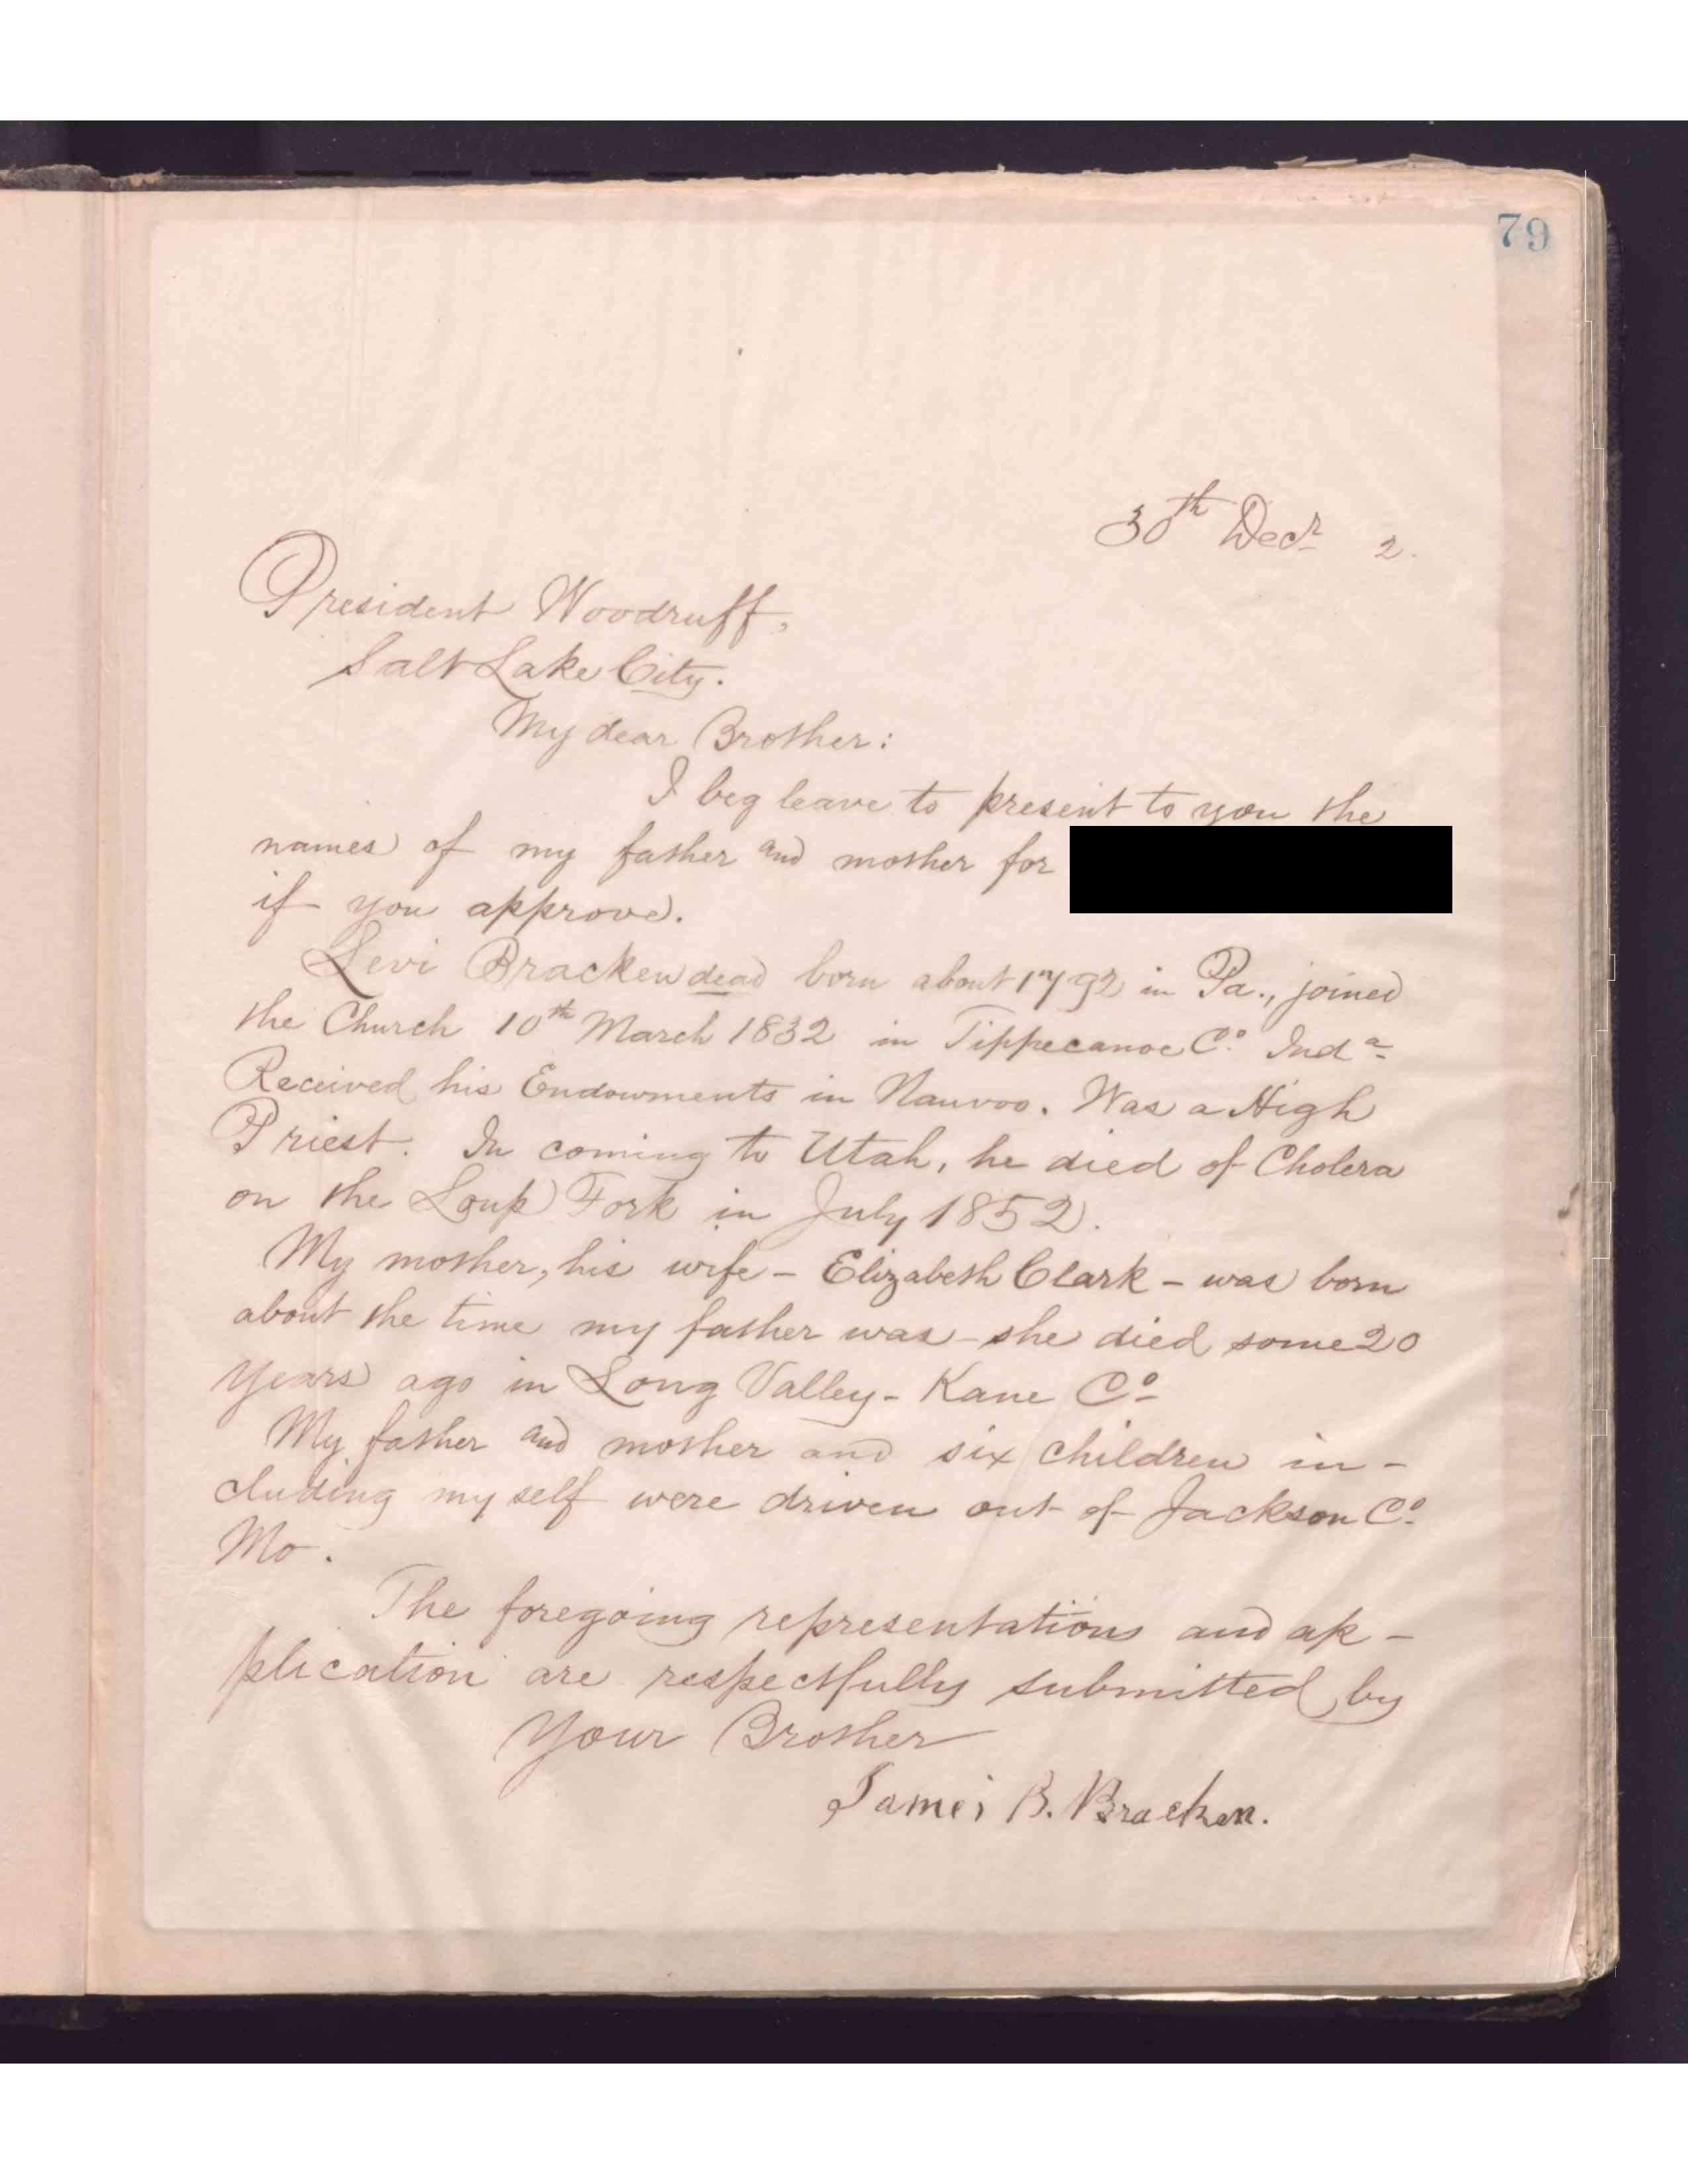 79
30th Decr 2.
President Woodruff,
Salt Lake City.
My dear Brother:
I beg leave to present to you the
names of my father and mother for
if you approve.
Levi Bracken dead born about 1792 in Pa., joined
the Church 10th March 1832 in Tippecanoe Co. Inda
Received his Endowments in Nauvoo. Was a High
Priest. In coming to Utah, he died of Cholera
on the Loup Fork in July 1852.
My mother, his wife - Elizabeth Clark - was born
about the time my father was - she died some 20
years ago in Long Valley - Kane Co
My father and mother and six children in-
cluding myself were driven out of Jackson Co.
Mo.
The foregoing representations and ap-
plication are respectfully submitted by
Your Brother
James B. Bracken.